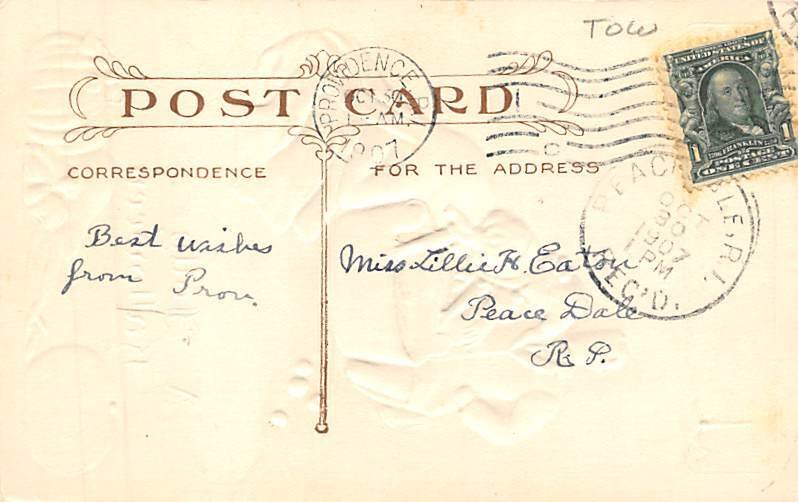 TOW
POST CARD
PROVIDENCE, R.I.
OCT 30
AM
1907
UNITED STATES OF
AMERICA
1 FRANKLIN 1
POSTAGE
ONE CENT
CORRESPONDENCE
FOR THE ADDRESS
PEACE DALE, R.I.
OCT
30
1907
PM
REC'D.
Best wishes
from Prov.
Miss Lillie H. Eaton
Peace Dale
R. I.